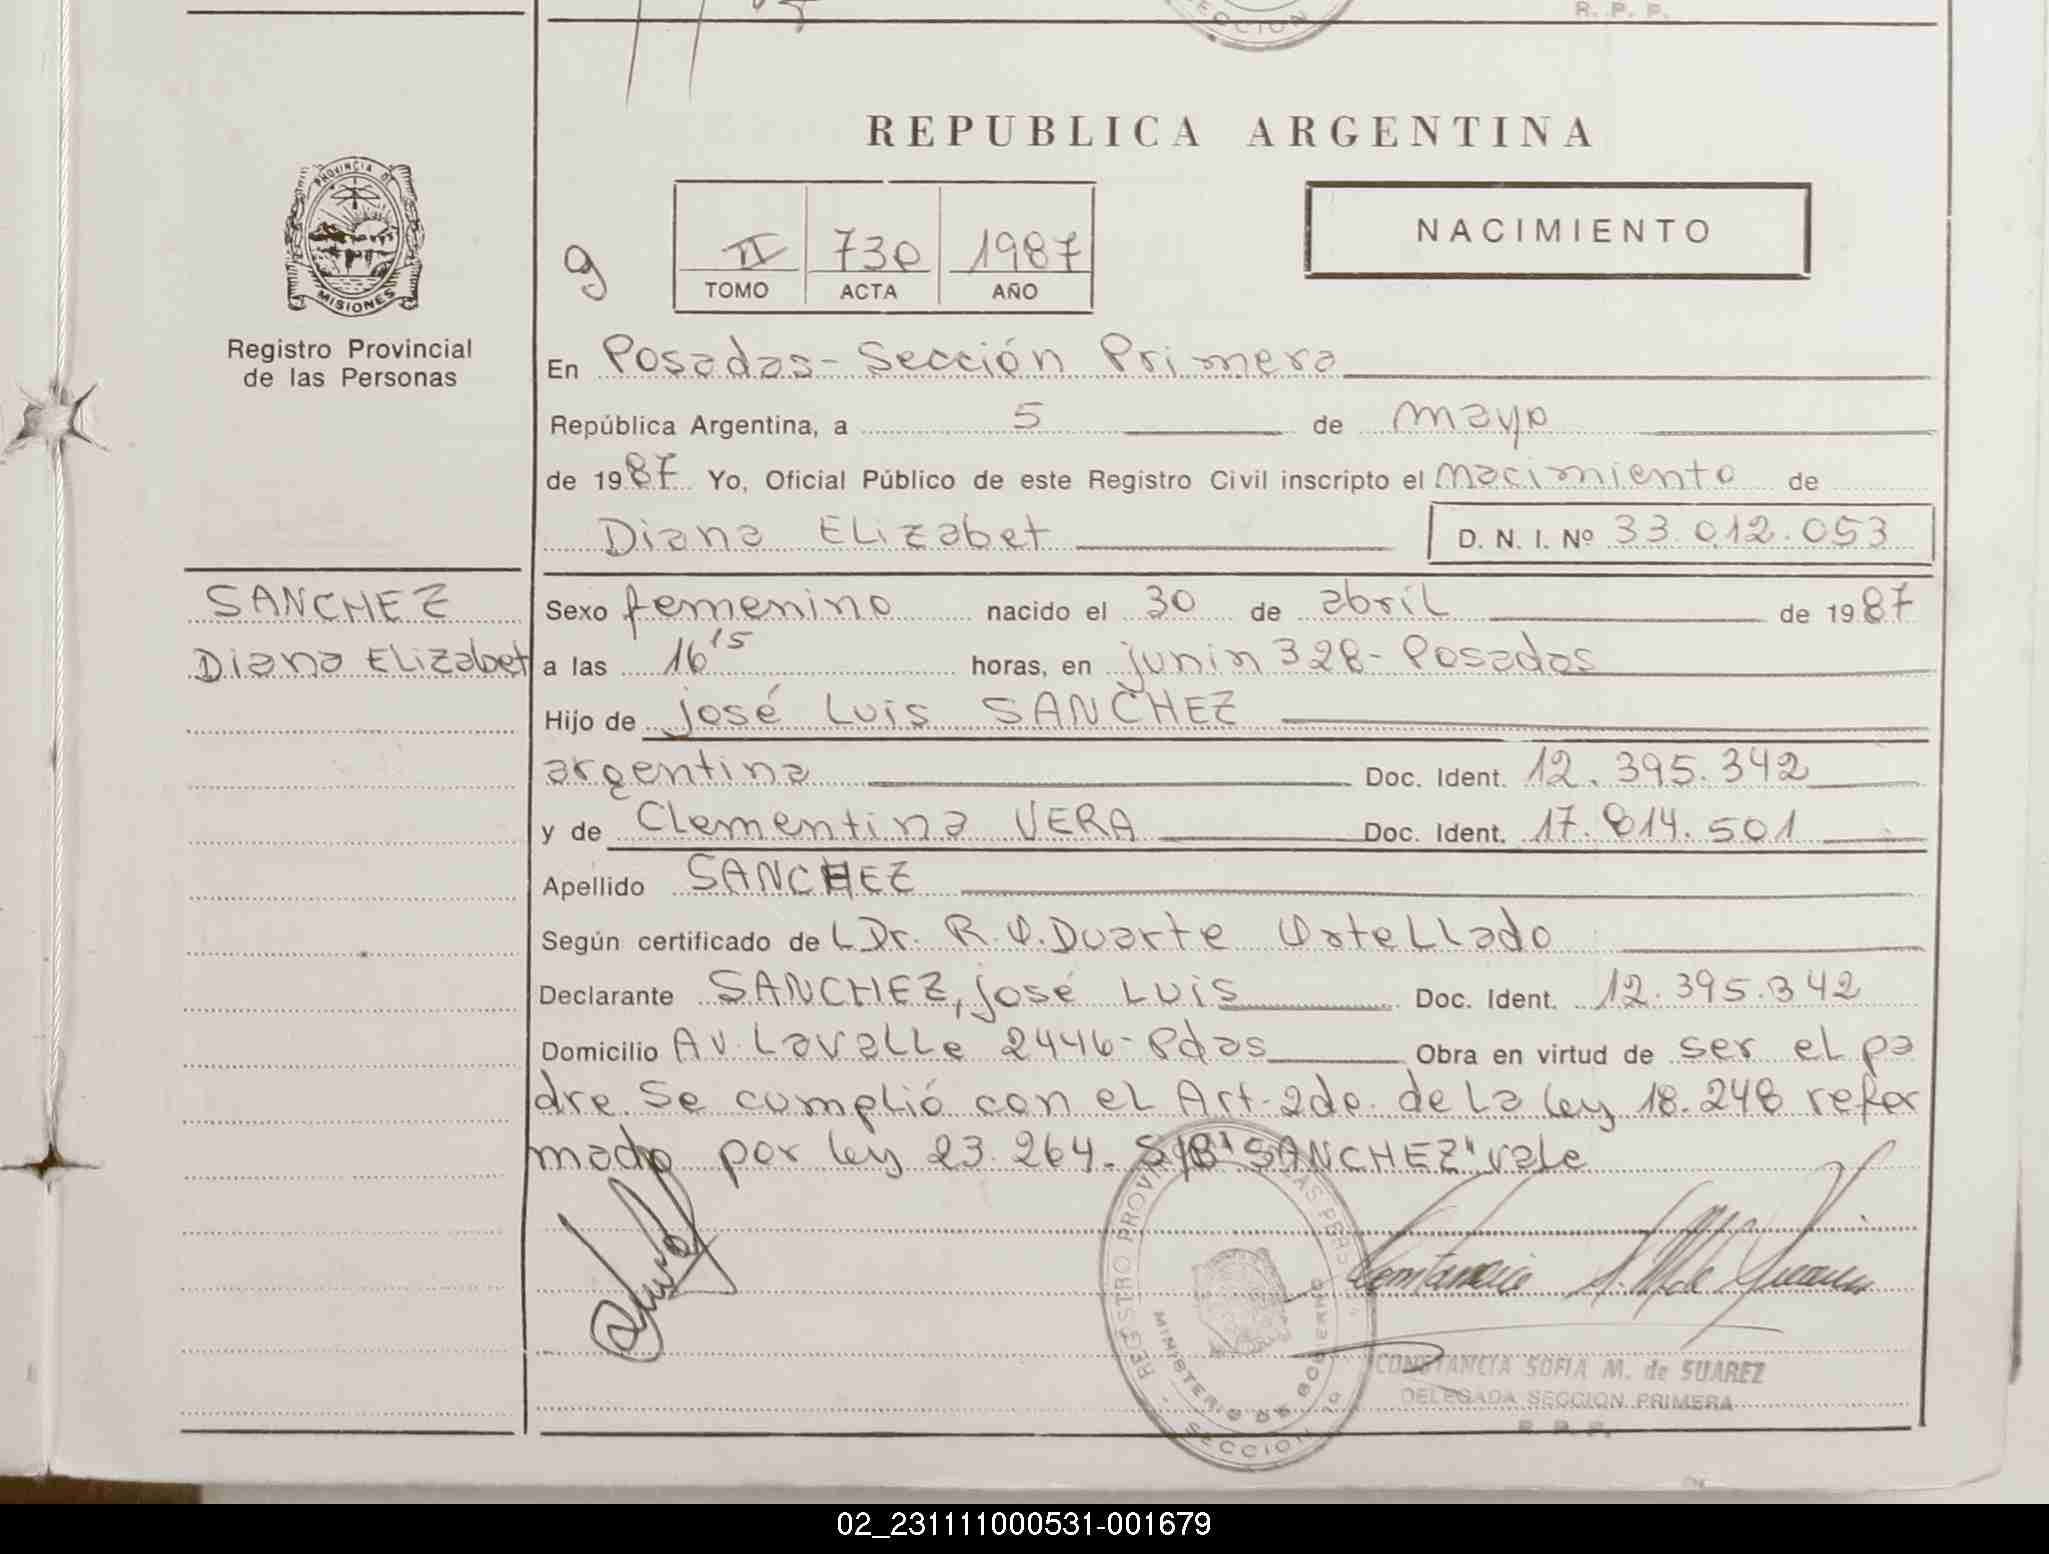 R. P. P.
SECCION
REPUBLICA ARGENTINA
PROVINCIA DE
MISIONES
Registro Provincial
de las Personas
9
II 730 1987
TOMO ACTA AÑO
NACIMIENTO
En Posadas - Sección Primera
República Argentina, a 5 de mayo
de 1987 Yo, Oficial Público de este Registro Civil inscripto el nacimiento de
Diana ELizabet D. N. I. Nº 33.012.053
SANCHEZ
Diana ELizabet
Sexo femenino nacido el 30 de abril de 1987
a las 16 15 horas, en junin 328 - Posadas
Hijo de josé Luis SANCHEZ
argentina Doc. Ident. 12.395.342
y de Clementina VERA Doc. Ident. 17.814.501
Apellido SANCHEZ
Según certificado de L Dr. R. O. Duarte OrteLLado
Declarante SANCHEZ, josé Luis Doc. Ident. 12.395.342
Domicilio Av. LavaLLe 2446 - Pdas Obra en virtud de ser el pa
dre. Se cumplió con el Art. 2do. de la ley 18.248 refor
mado por ley 23.264. S/B "SANCHEZ" vale
REGISTRO PROVINCIAL DE LAS PERSONAS
MINISTERIO DE GOBIERNO
SECCION 1a
CONSTANCIA SOFIA M. de SUAREZ
DELEGADA SECCION PRIMERA
R. P. P.
02_231111000531-001679